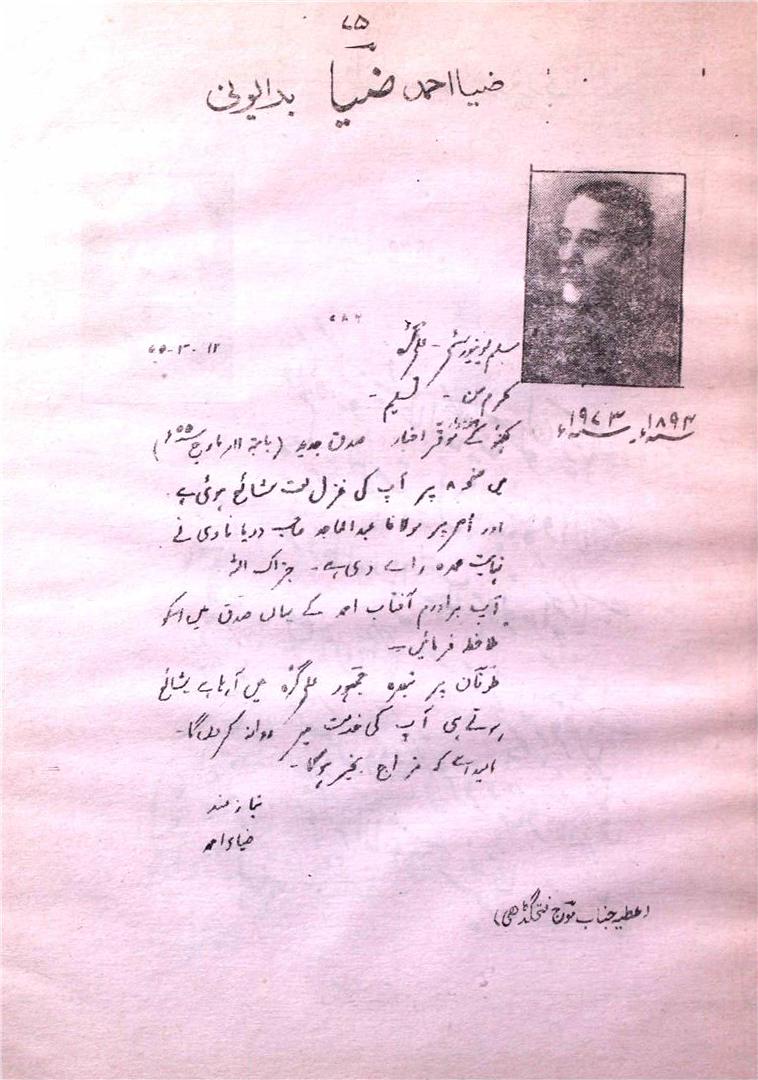 ۷۵
ضیا احمد ضیا بدایونی
۷۸۶
مسلم یونیورسٹی - علی گڑھ
مکرم من - تسلیم -
۱۸۹۳ء - ۱۹۷۳ء
لکھنؤ کے موقر اخبار صدق جدید (بابتہ ۱۱ مارچ ۵۵ء)
میں صفحہ ۸ پر آپ کی غزل نعت شائع ہوئی ہے
اور اس پر مولانا عبدالماجد صاحب دریابادی نے
نہایت عمدہ رائے دی ہے - جزاک اللہ
آپ برادرم آفتاب احمد کے یہاں صدق میں اسکو
ملاحظہ فرمائیں -
پر تبصرہ جمہور علی گڑھ میں آرہا ہے شائع
ہوتے ہی آپ کی خدمت میں روانہ کردوں گا -
امید ہے کہ مزاج بخیر ہوگا -
نیازمند
ضیاء احمد
(عطیہ جناب موج فتحگڈھی)